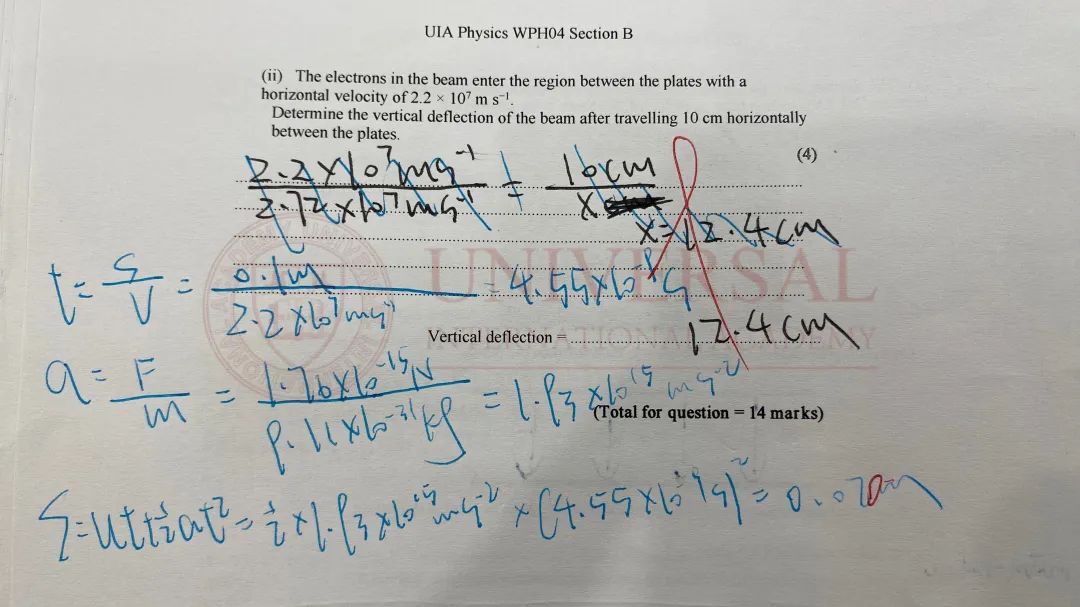 UIA Physics WPH04 Section B
(ii) The electrons in the beam enter the region between the plates with a
horizontal velocity of 2.2 × 10⁷ m s⁻¹.
Determine the vertical deflection of the beam after travelling 10 cm horizontally
between the plates.
(4)
2.2×10⁷ms⁻¹ / 2.72×10⁷ms⁻¹ = 10cm / x
x=12.4cm
t = s/v = 0.1m / 2.2×10⁷ms⁻¹ = 4.55×10⁻⁹s
UNIVERSAL
Vertical deflection = 12.4cm
a = F/m = 1.76×10⁻¹⁵N / 9.11×10⁻³¹kg = 1.93×10¹⁵ms⁻²
(Total for question = 14 marks)
S=ut+½at² = ½×1.93×10¹⁵ms⁻²×(4.55×10⁻⁹s)² = 0.020m